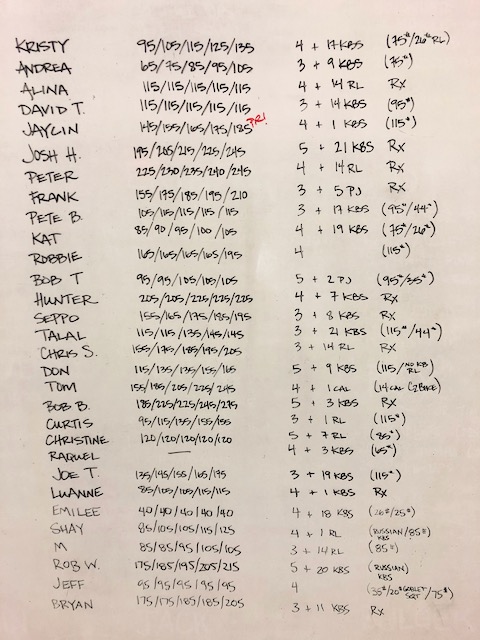 KRISTY 95/105/115/125/135 4 + 17 KBS (75#/26# RL)
ANDREA 65/75/85/95/105 3 + 9 KBS (75#)
ALINA 115/115/115/115/115 4 + 14 RL Rx
DAVID T. 115/115/115/115/115 3 + 14 KBS (95#)
JAYLIN 145/155/165/175/185 PR! 4 + 1 KBS (115#)
JOSH H. 195/205/215/225/245 5 + 21 KBS Rx
PETER 225/230/235/240/245 4 + 14 RL Rx
FRANK 155/175/185/195/210 3 + 5 PJ Rx
PETE B. 105/115/115/115/115 3 + 17 KBS (95#/44#)
KAT 85/90/95/100/105 4 + 19 KBS (75#/26#)
ROBBIE 165/165/165/165/195 4 (115#)
BOB T 95/95/105/105/105 5 + 2 PJ (95#/35#)
HUNTER 205/205/225/225/225 4 + 7 KBS Rx
SEPPO 155/165/175/185/195 3 + 8 KBS Rx
TALAL 115/115/135/145/145 3 + 21 KBS (115#/44#)
CHRIS S. 155/175/185/195/205 3 + 14 RL Rx
DON 115/135/135/155/165 5 + 9 KBS (115/NO KB RL)
TOM 155/185/205/225/245 4 + 1 CAL (14 CAL C2 BIKE)
BOB B. 185/225/225/245/275 5 + 3 KBS Rx
CURTIS 95/115/135/155/155 3 + 1 RL (115#)
CHRISTINE 120/120/120/120/120 5 + 7 RL (85#)
RAQUEL — 4 + 3 KBS (65#)
JOE T. 135/145/155/165/175 3 + 19 KBS (115#)
LUANNE 85/105/105/115/115 4 + 1 KBS Rx
EMILEE 40/40/40/40/40 4 + 18 KBS (26#/25#)
SHAY 85/105/105/115/125 4 + 1 RL (RUSSIAN KBS/85#)
M 85/85/95/105/105 3 + 14 RL (85#)
ROB W. 175/185/195/205/215 5 + 20 KBS (RUSSIAN) KBS
JEFF 95/95/95/95/95 4 (35#/20# GOBLET SQT/75#)
BRYAN 175/175/185/185/205 3 + 11 KBS Rx